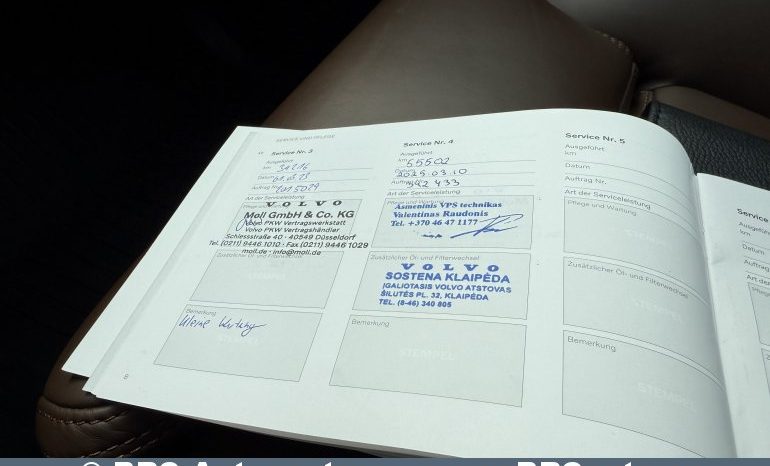 SERVICE UND PFLEGE
Service Nr. 3
Ausgeführt
km 31216
Datum
Auftrag Nr. 2015029
Art der Serviceleistung
Pflege und Wartung
VOLVO
Moll GmbH & Co. KG
Volvo PKW Vertragswerkstatt
Volvo PKW Vertragshändler
Schiessstraße 40 · 40549 Düsseldorf
Tel. (0211) 9446 1010 · Fax (0211) 9446 1029
moll.de · info@moll.de
Zusätzlicher Öl- und Filterwechsel
STEMPEL
Bemerkung
Kleine Wartung
STEMPEL
6
Service Nr. 4
Ausgeführt
km 55502
2025.03.10
Auftrag
Art der Serviceleistung
Pflege und Wartung
Asmeninis VPS technikas
Valentinas Raudonis
Tel. +370 46 47 1177
Zusätzlicher Öl- und Filterwechsel
VOLVO
SOSTENA KLAIPĖDA
ĮGALIOTASIS VOLVO ATSTOVAS
ŠILUTĖS PL. 32, KLAIPĖDA
TEL. (8-46) 340 805
Bemerkung
STEMPEL
Service Nr. 5
Ausgeführt
km
Datum
Auftrag Nr.
Art der Serviceleistung
Pflege und Wartung
Zusätzlicher Öl- und Filterwechsel
Bemerkung
STEMPEL
Service
Ausgeführt
km
Datum
Auftrag